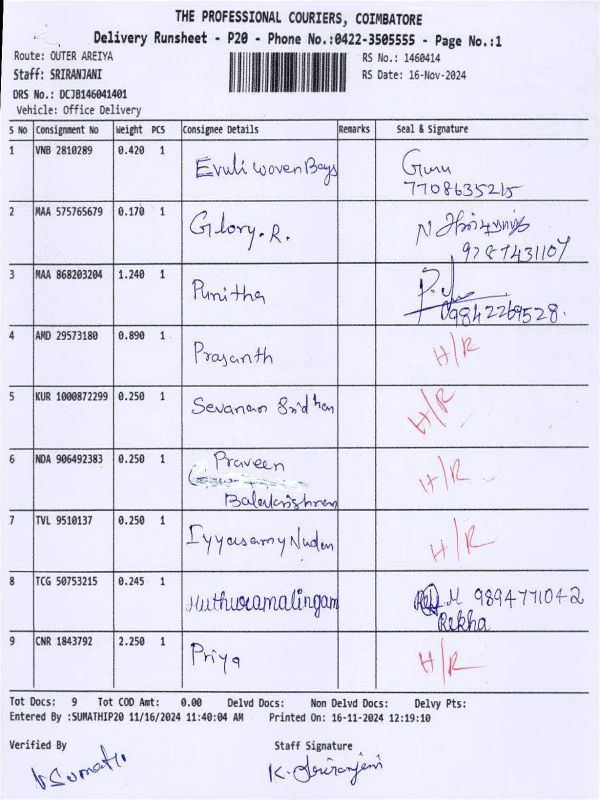 THE PROFESSIONAL COURIERS, COIMBATORE
Delivery Runsheet - P20 - Phone No.:0422-3505555 - Page No.:1
Route: OUTER AREIYA
RS No.: 1460414
Staff: SRIRANJANI
RS Date: 16-Nov-2024
DRS No.: DCJB146041401
Vehicle: Office Delivery
S No Consignment No Weight PCS Consignee Details Remarks Seal & Signature
1 VNB 2810289 0.420 1 Evuli Woven Bags Guru
7708635215
2 MAA 575765679 0.170 1 Glory. R. N
9787431107
3 MAA 868203204 1.240 1 Punitha
09842269528.
4 AMD 29573180 0.890 1 Prasanth H/R
5 KUR 1000872299 0.250 1 Sevanan Sridhan H/R
6 NDA 906492383 0.250 1 Praveen H/R
Balakrishnan
7 TVL 9510137 0.250 1 Iyyasamy Nuden H/R
8 TCG 50753215 0.245 1 Muthuramalingam M 9894771042
Rekha
9 CNR 1843792 2.250 1 Priya H/R
Tot Docs: 9 Tot COD Amt: 0.00 Delvd Docs: Non Delvd Docs: Delvy Pts:
Entered By :SUMATHIP20 11/16/2024 11:40:04 AM Printed On: 16-11-2024 12:19:10
Verified By Staff Signature
Sumathi K. Sriranjani